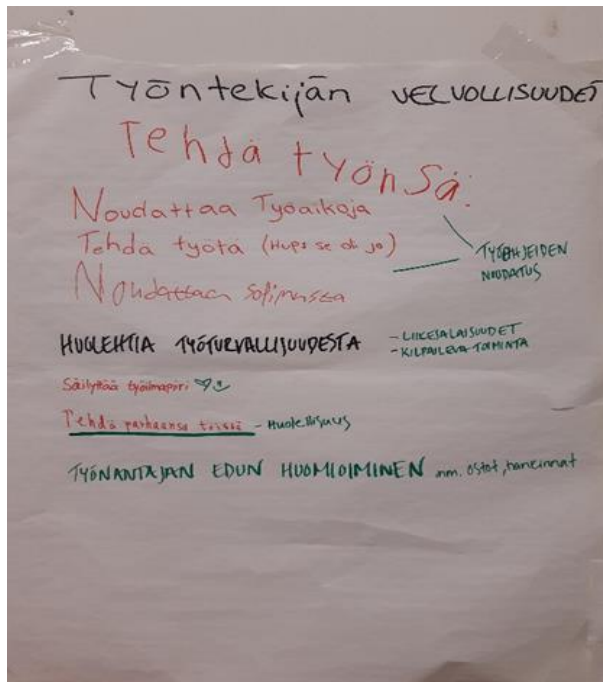 Työntekijän VELVOLLISUUDET
Tehdä työnsä.
Noudattaa Työaikoja
Tehdä työtä (Hups se oli jo)
TYÖOHJEIDEN
NOUDATUS
Noudattaa sopimusta
HUOLEHTIA TYÖTURVALLISUUDESTA
- LIIKESALAISUUDET
- KILPAILEVA TOIMINTA
Säilyttää työilmapiiri
Tehdä parhaansa töissä - Huolellisuus
TYÖNANTAJAN EDUN HUOMIOIMINEN mm. ostot, hankinnat